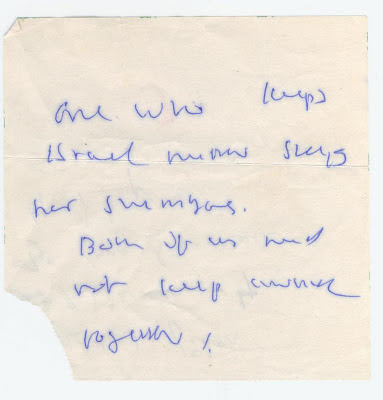 One who keeps
Israel never sleeps
nor slumbers.
Both of us need
not keep awake
together!